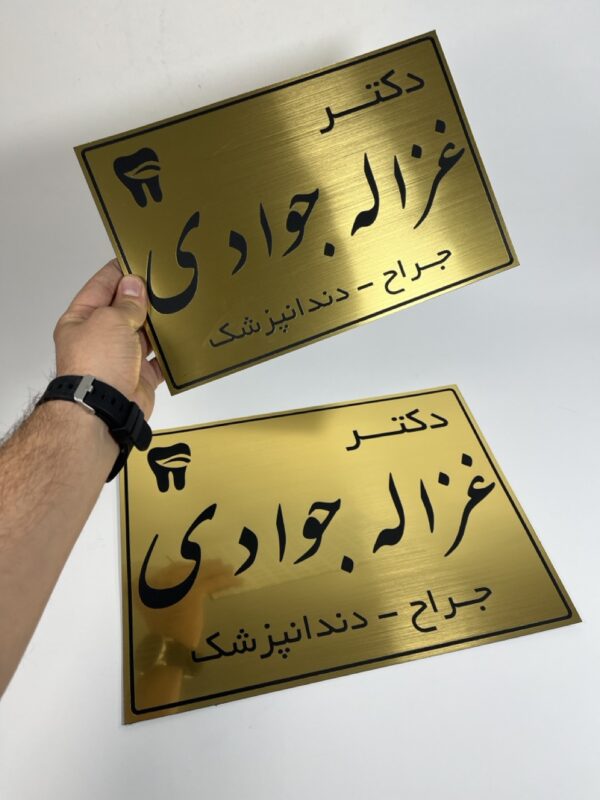 دکتر
غزاله جوادی
جراح - دندانپزشک
دکتر
غزاله جوادی
جراح - دندانپزشک